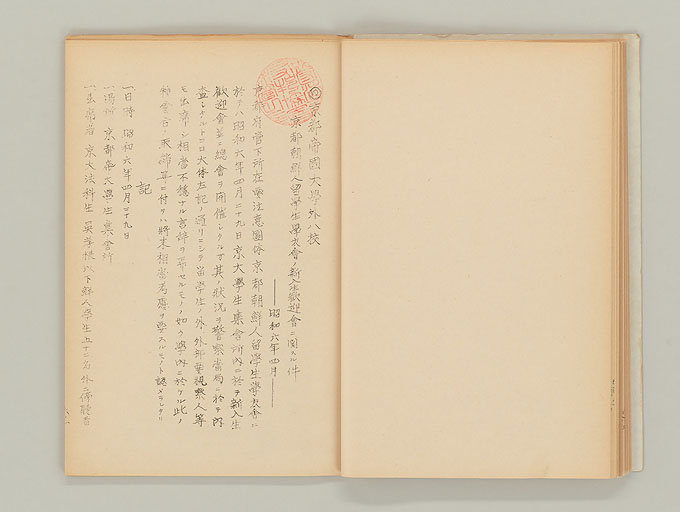 ◎京都帝國大學外八校
京都朝鮮人留學生學友會ノ新入生歡迎會ニ関スル件
昭和六年四月
京都府管下所在要注意團体京都朝鮮人留學生學友會ニ
於テハ昭和六年四月二十九日京大學生集會所内ニ於テ新入生
歡迎會並ニ總會ヲ開催シタルガ其ノ狀況ヲ警察當局ニ於テ内
査シタルトコロ大体左記ノ通リニシテ留學生ノ外外部要視察人等
モ出席シ相當不穩ナル言辞ヲ弄セルモノノ如ク學内ニ於ケル此ノ
種會合ノ取締等ニ付テハ將来相當考慮ヲ要スルモノト認メラレタリ
記
一、日時 昭和六年四月二十九日
一、場所 京都帝大學生集會所
一、出席者 京大法科生 以下鮮人學生五十二名外ニ傍聽者